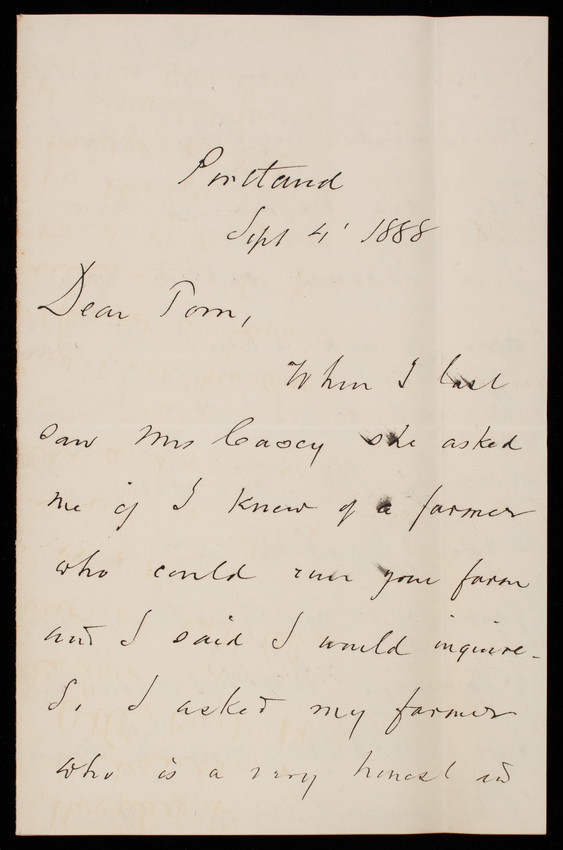 Portland
Sept 4' 1888
Dear Tom,
When I last
saw Mrs Casey she asked
me if I knew of a farmer
who could run your farm
and I said I would inquire -
So I asked my farmer
who is a very honest and